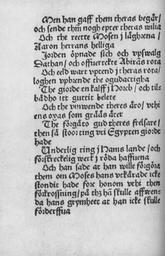 Men han gaff them theras begär
och sende them nogh epter theras wilia
Och the rette Mosen i läghrena /
Aaron herrans helliga
Jorden öpnade sich och vpswalg
Dathan / och offuertecte Abirās rota
Och eld wart vptend i theras rota /
loghen vpbrende the ogudactigha
The giorde en kalff j Horeb / och til
bådho itt gutit belete
Och the vmwende theras äro / vthi
ens oyas som gräås äter
The forgåto gud theras frelsare /
then så stoor ting vti Egypten giorde
hade
Underlig ting j Hams lande / och
förskreckelig werk j röda haffuena
Och han sade at han wille fögöra
them om Moses hans vtkårade icke
ståndit hade fore honom vthi then
sköfflning / på thz hā skulle affwen
da hans grymheet at han icke skulle
förderffua